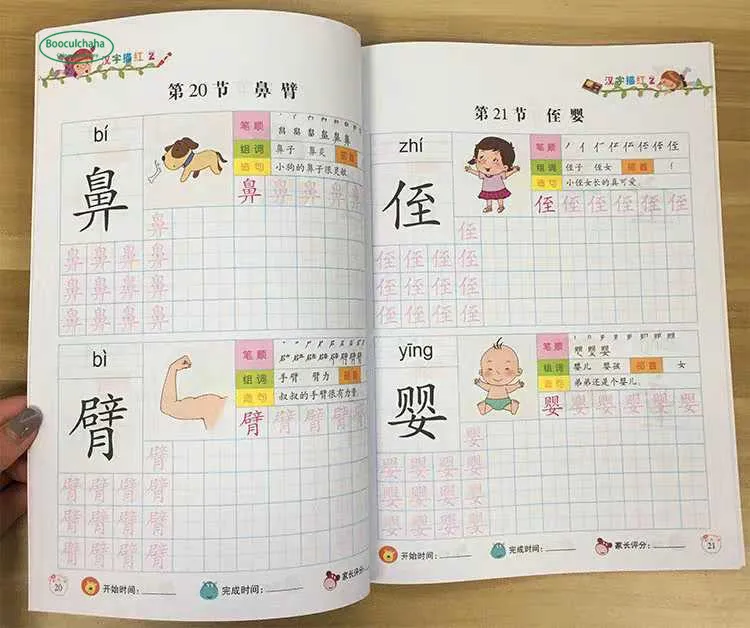 Booculchaha
汉字描红2
第20节 鼻 臂
bí
鼻
笔顺
组词 鼻子 鼻炎 部首
造句 小狗的鼻子很灵敏
鼻 鼻 鼻 鼻 鼻
鼻
鼻 鼻 鼻 鼻
鼻 鼻 鼻 鼻
鼻 鼻 鼻 鼻
bì
臂
笔顺
组词 手臂 臂力 部首
造句 叔叔的手臂很有力量
臂 臂 臂 臂 臂
臂
臂 臂 臂 臂
臂 臂 臂 臂
臂 臂 臂 臂
20 开始时间: 完成时间: 家长评分:
汉字描红2
第21节 侄 婴
zhí
侄
笔顺
组词 侄子 侄女 部首 亻
造句 小侄女长的真可爱
侄 侄 侄 侄 侄 侄
侄
侄 侄 侄 侄
侄 侄 侄 侄
侄 侄 侄 侄
yīng
婴
笔顺
婴 婴 婴
组词 婴儿 婴孩 部首 女
造句 弟弟还是个婴儿
婴 婴 婴 婴 婴 婴
婴
婴 婴 婴 婴
婴 婴 婴 婴
婴 婴 婴 婴
开始时间: 完成时间: 家长评分: 21